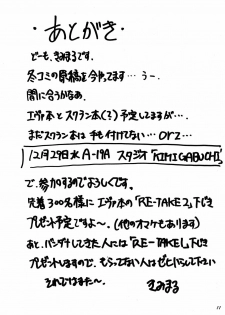 ・あとがき・
どーも、きみまるです。
冬コミの原稿を今やってます… うー。
間に合うかなぁ
エヴァ本とスクラン本(？)予定してますが…
まだスクラン本は手も付けてない… orz…
12月29日水 A-19A スタジオ「KIMIGABUCHI」
で、参加するのでよろしくです。
先着300名様に エヴァ本の「RE-TAKE2」下じき
プレゼント予定ですよ〜。(他のオマケもあります)
あと、バンダナしてきた人には「RE-TAKE1」下じき
プレゼントしますので、もらってない人はぜひしてきて下さい
それではまた〜。 きみまる